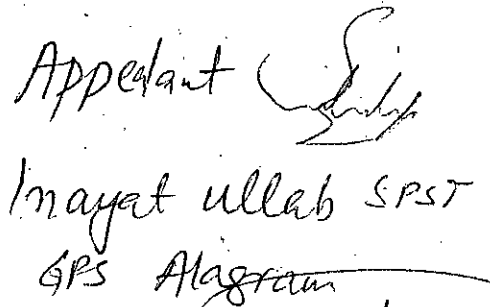 Appealant
Inayat ullah SPST
GPS Alagram